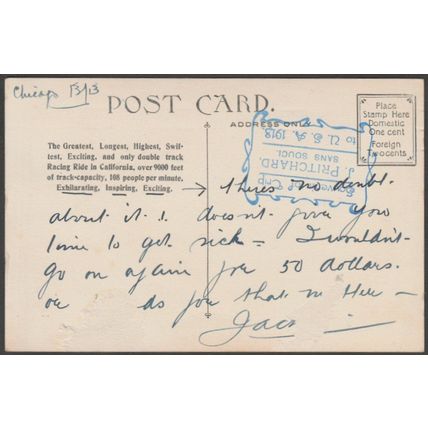 Chicago 13/13
POST CARD.
ADDRESS ONLY
Place
Stamp Here
Domestic
One cent
Foreign
Two cents
to U.S.A. 1913
J. PRITCHARD.
SANS SOUCI.
The Greatest, Longest, Highest, Swif-
test, Exciting, and only double track
Racing Ride in California, over 9000 feet
of track-capacity, 108 people per minute.
Exhilarating, Inspiring, Exciting. → there's no doubt
about it. doesn't give you
time to get sick – I wouldn't
go on again for 50 dollars.
as for that on Here –
Jack